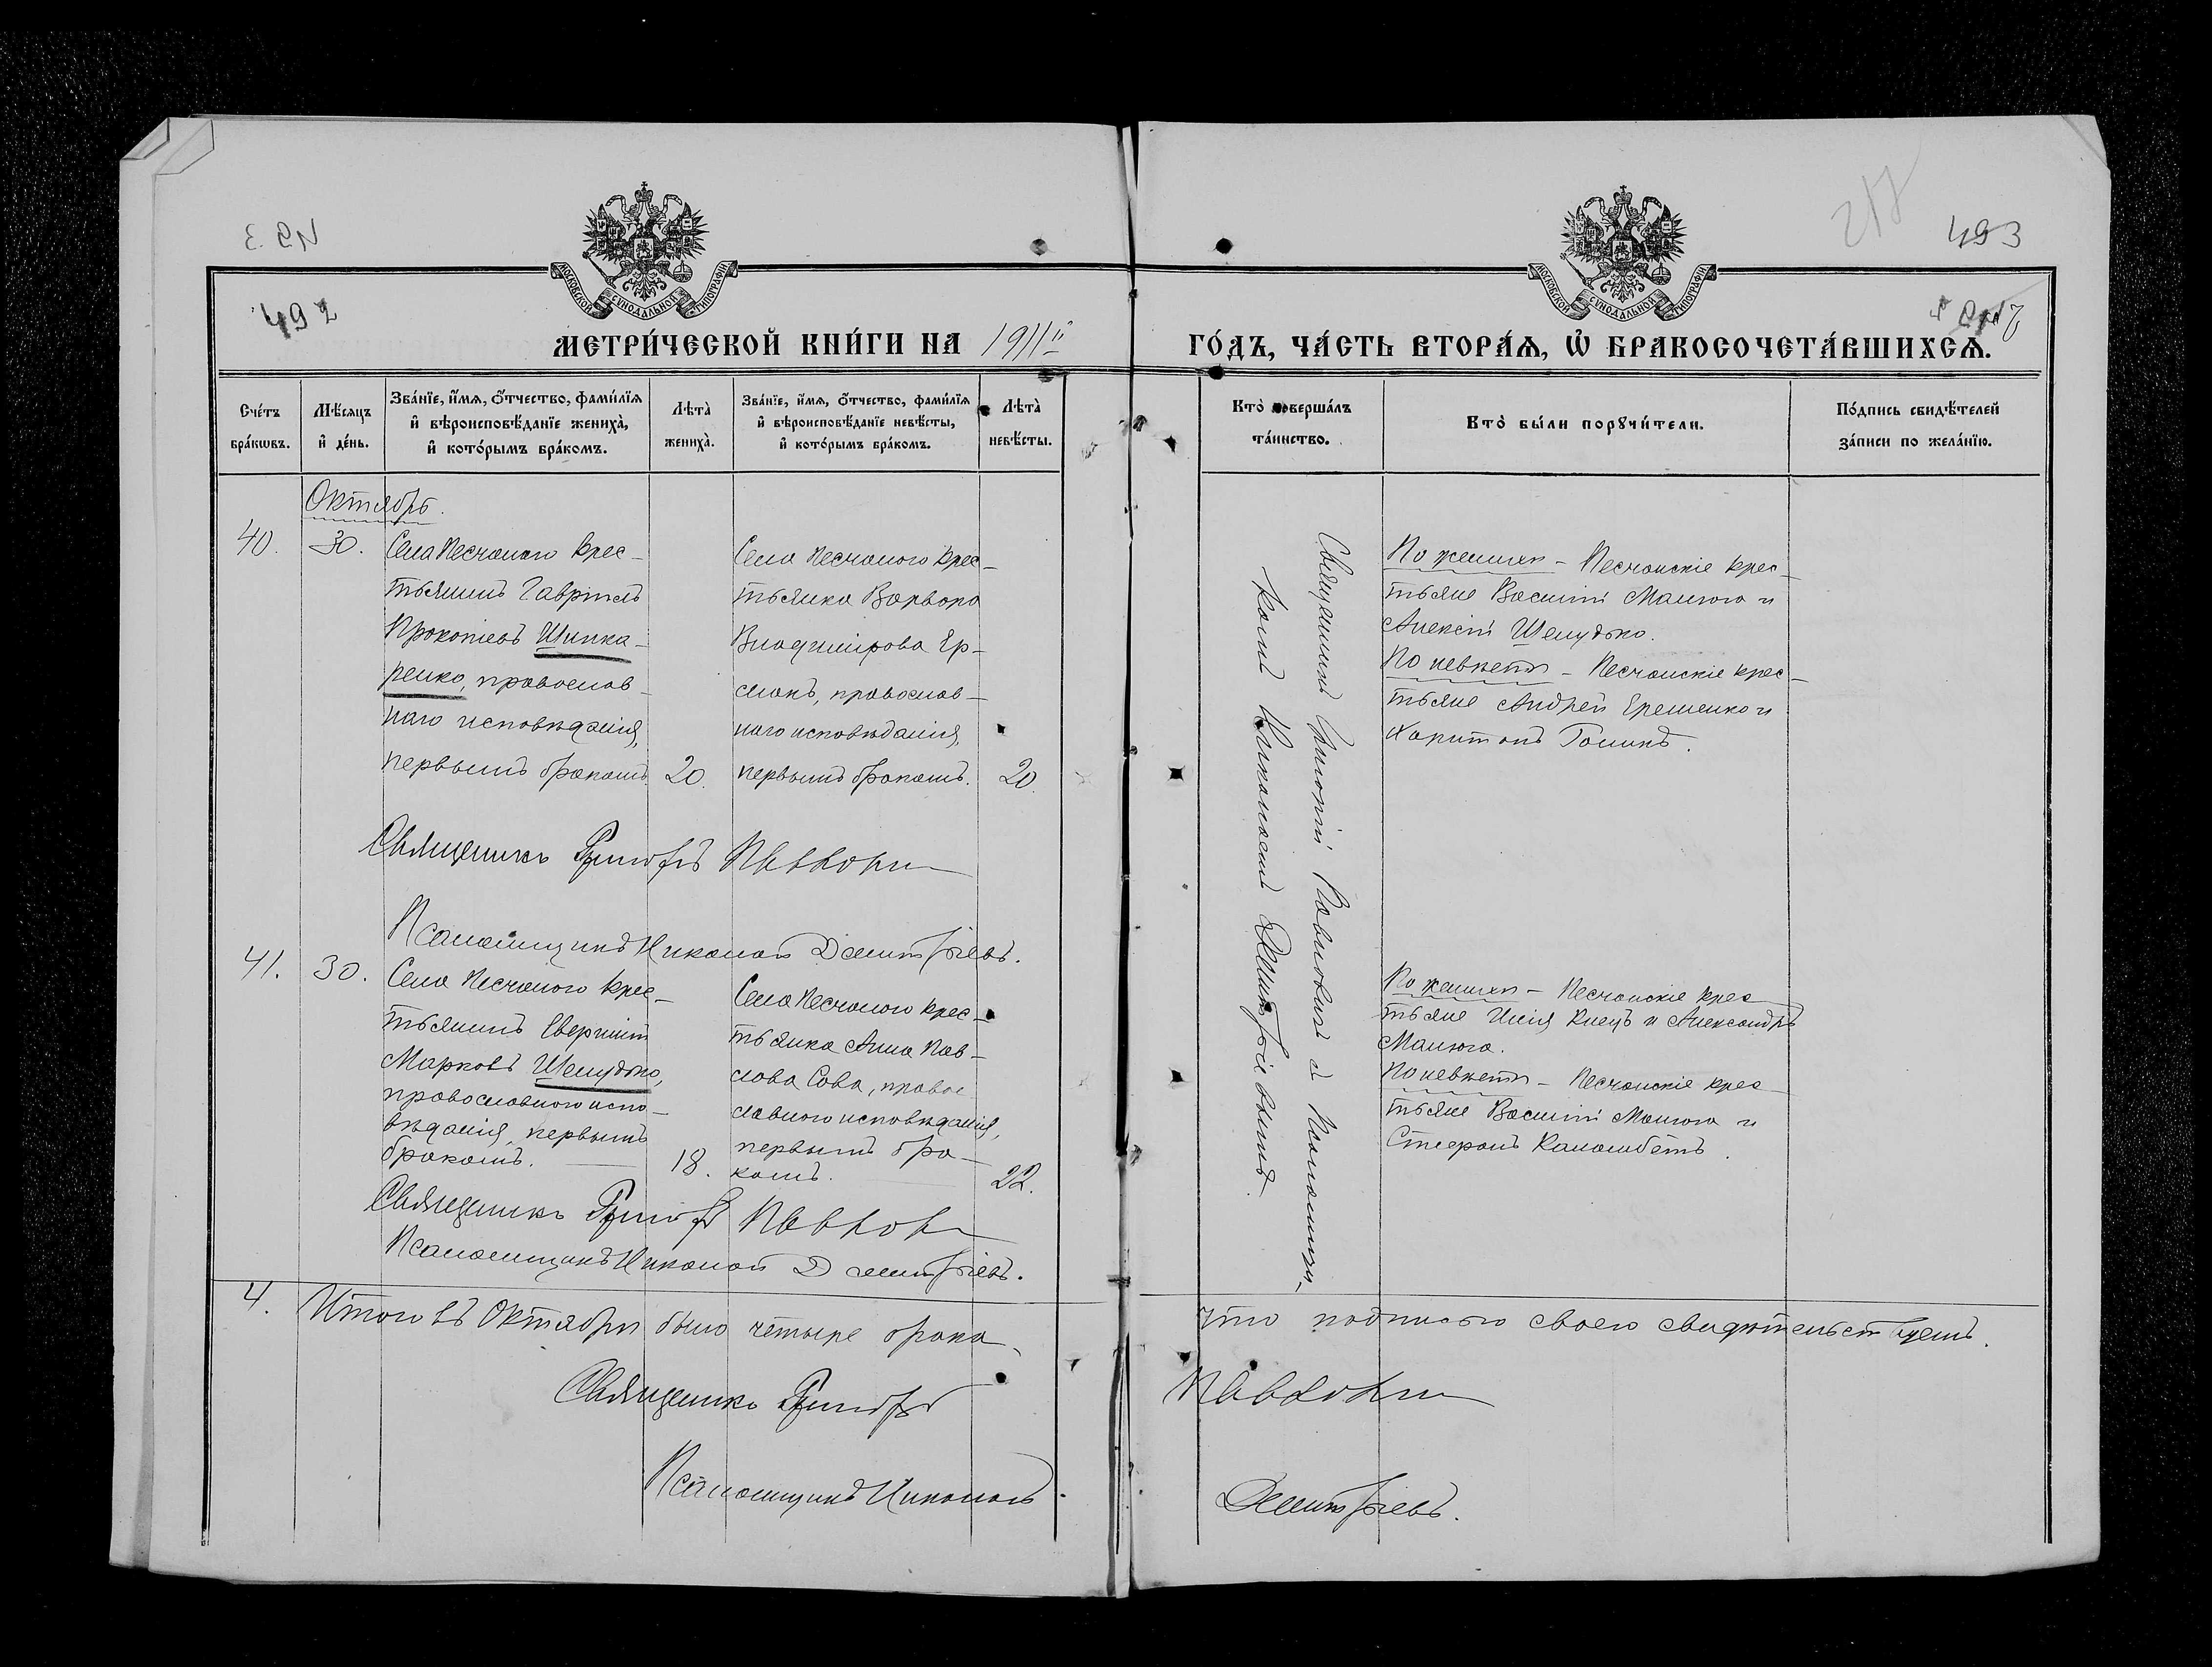 493
492
493
МОСКОВСКОЙ СѴНОДАЛЬНОЙ ТИПОГРАФІИ
МОСКОВСКОЙ СѴНОДАЛЬНОЙ ТИПОГРАФІИ
МЕТРИ́ЧЕСКОЙ КНИ́ГИ НА 1911й
ГО́ДЪ, ЧА́СТЬ ВТОРА́Ѧ, Ѽ БРАКОСОЧЕТА́ВШИХСѦ.
Сче́тъ бра́кѡвъ.
Мѣ́сяцъ и҆ де́нь.
Зва́нїе, и҆́мѧ, ѻ҆́тчество, фами́лїѧ и҆ вѣроисповѣ́данїе жениха̀, и҆ кото́рымъ бра́комъ.
Лѣта̀ жениха̀.
Зва́нїе, и҆́мѧ, ѻ҆́тчество, фами́лїѧ и҆ вѣроисповѣ́данїе невѣ́сты, и҆ кото́рымъ бра́комъ.
Лѣта̀ невѣ́сты.
Кто̀ соверша́лъ та́инство.
Кто̀ бы́ли порꙋчи́тели.
По́дпись свидѣ́телей за́писи по жела́нїю.
Октябрь.
40.
30.
Села Песчаного крес-
тьянинъ Гавріилъ
Прокопіевъ Шинка-
ренко, православ-
наго исповѣданія,
первымъ бракомъ.
20.
Села Песчаного крес-
тьянка Варвара
Владимірова Ер-
макъ, православ-
наго исповѣданія,
первымъ бракомъ.
20.
Священникъ Григорій Павловичъ и Псаломщи-
комъ Николаемъ Дмитріевымъ.
По женихѣ - Песчанскіе крес-
тьяне Василій Малюга и
Алексѣй Шемудько.
По невѣстѣ - Песчанскіе крес-
тьяне Андрей Еременко и
Харитонъ Голикъ.
Священникъ Григорій
Псаломщикъ Николай Дмитріевъ.
41.
30.
Села Песчаного крес-
тьянинъ
Марковъ Шемудько,
православного испо-
вѣданія, первымъ
бракомъ.
18.
Села Песчаного крес-
тьянка Анна Пав-
лова Сова, право-
славного исповѣданія,
первымъ бра-
комъ.
22.
По женихѣ - Песчанскіе крес-
тьяне Илія Киецъ и Александръ
Малюга.
По невѣстѣ - Песчанскіе крес-
тьяне Василій Малюга и
Стефанъ Каламбетъ.
Священникъ Григорій
Псаломщикъ Николай Дмитріевъ.
4.
Итого въ Октябрѣ было четыре брака, что подписью своею свидѣтельствуемъ.
Священникъ Григорій
Псаломщикъ Николай Дмитріевъ.